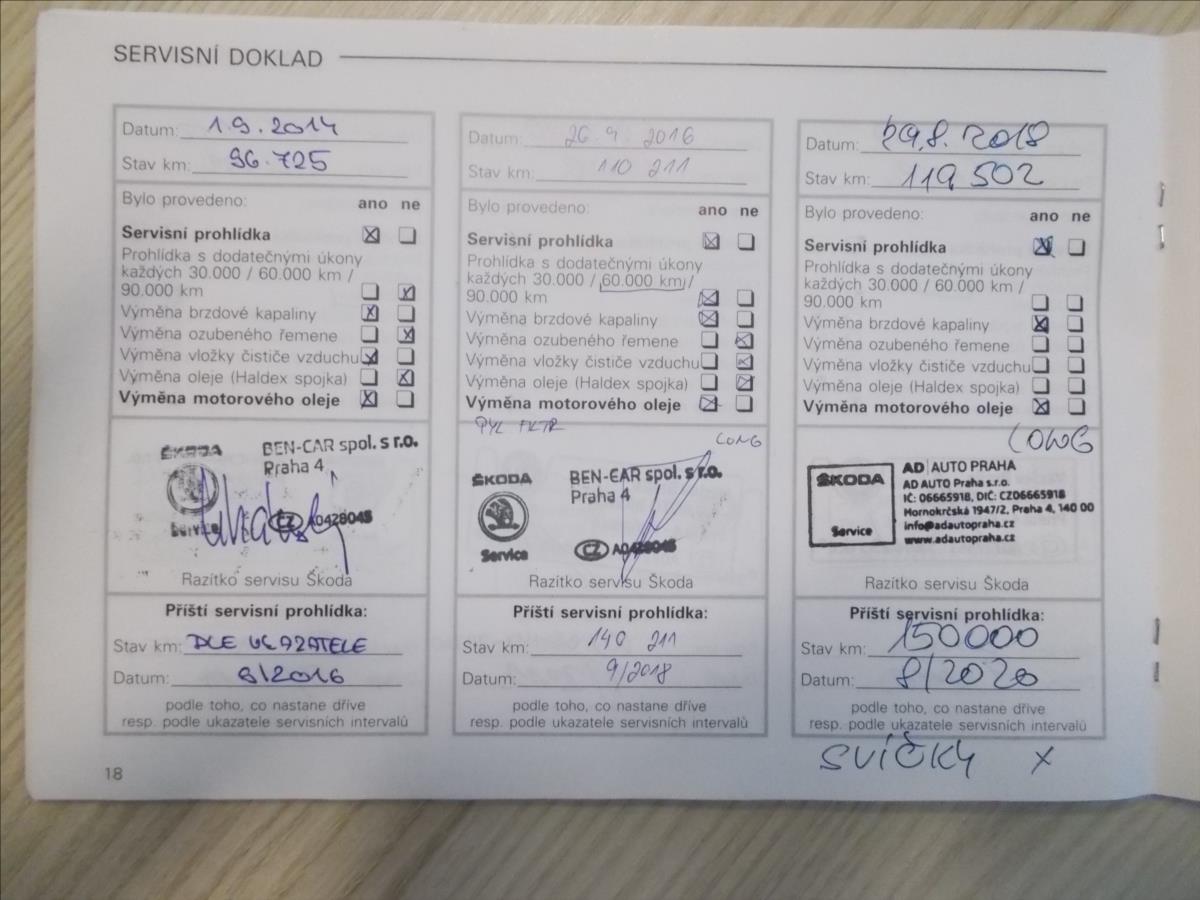 SERVISNÍ DOKLAD
Datum: 1.9.2014
Stav km: 96.725
Bylo provedeno: ano ne
Servisní prohlídka
Prohlídka s dodatečnými úkony
každých 30.000 / 60.000 km /
90.000 km
Výměna brzdové kapaliny
Výměna ozubeného řemene
Výměna vložky čističe vzduchu
Výměna oleje (Haldex spojka)
Výměna motorového oleje
ŠKODA
BEN-CAR spol. s r.o.
Praha 4
CZ A0428045
Service
Razítko servisu Škoda
Příští servisní prohlídka:
Stav km: DLE UKAZATELE
Datum: 9/2016
podle toho, co nastane dříve
resp. podle ukazatele servisních intervalů
Datum: 26.9.2016
Stav km: 110 211
Bylo provedeno: ano ne
Servisní prohlídka
Prohlídka s dodatečnými úkony
každých 30.000 / 60.000 km /
90.000 km
Výměna brzdové kapaliny
Výměna ozubeného řemene
Výměna vložky čističe vzduchu
Výměna oleje (Haldex spojka)
Výměna motorového oleje
PYL FILTR
LONG
ŠKODA
BEN-CAR spol. s r.o.
Praha 4
CZ A0428045
Service
Razítko servisu Škoda
Příští servisní prohlídka:
Stav km: 140 211
Datum: 9/2018
podle toho, co nastane dříve
resp. podle ukazatele servisních intervalů
Datum: 29.8.2018
Stav km: 119.502
Bylo provedeno: ano ne
Servisní prohlídka
Prohlídka s dodatečnými úkony
každých 30.000 / 60.000 km /
90.000 km
Výměna brzdové kapaliny
Výměna ozubeného řemene
Výměna vložky čističe vzduchu
Výměna oleje (Haldex spojka)
Výměna motorového oleje
LONG
ŠKODA
Service
AD AUTO PRAHA
AD AUTO Praha s.r.o.
IČ: 06665918, DIČ: CZ06665918
Hornokrčská 1947/2, Praha 4, 140 00
info@adautopraha.cz
www.adautopraha.cz
Razítko servisu Škoda
Příští servisní prohlídka:
Stav km: 150000
Datum: 8/2020
podle toho, co nastane dříve
resp. podle ukazatele servisních intervalů
SVÍČKY X
18